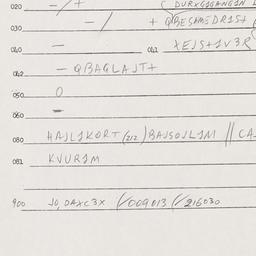 020 — / +
( DURXG1GANG1N
030 — / + QBESAMSDR1S+
040 — 041 XEJS+1V3R
042 — QBAGLAJT+
050 O
060 —
080 HAJL1KORT (212) BAJSOJL1M // CA
081 KVUR1M
900 JO, DAXC3X (/009013 (/216030